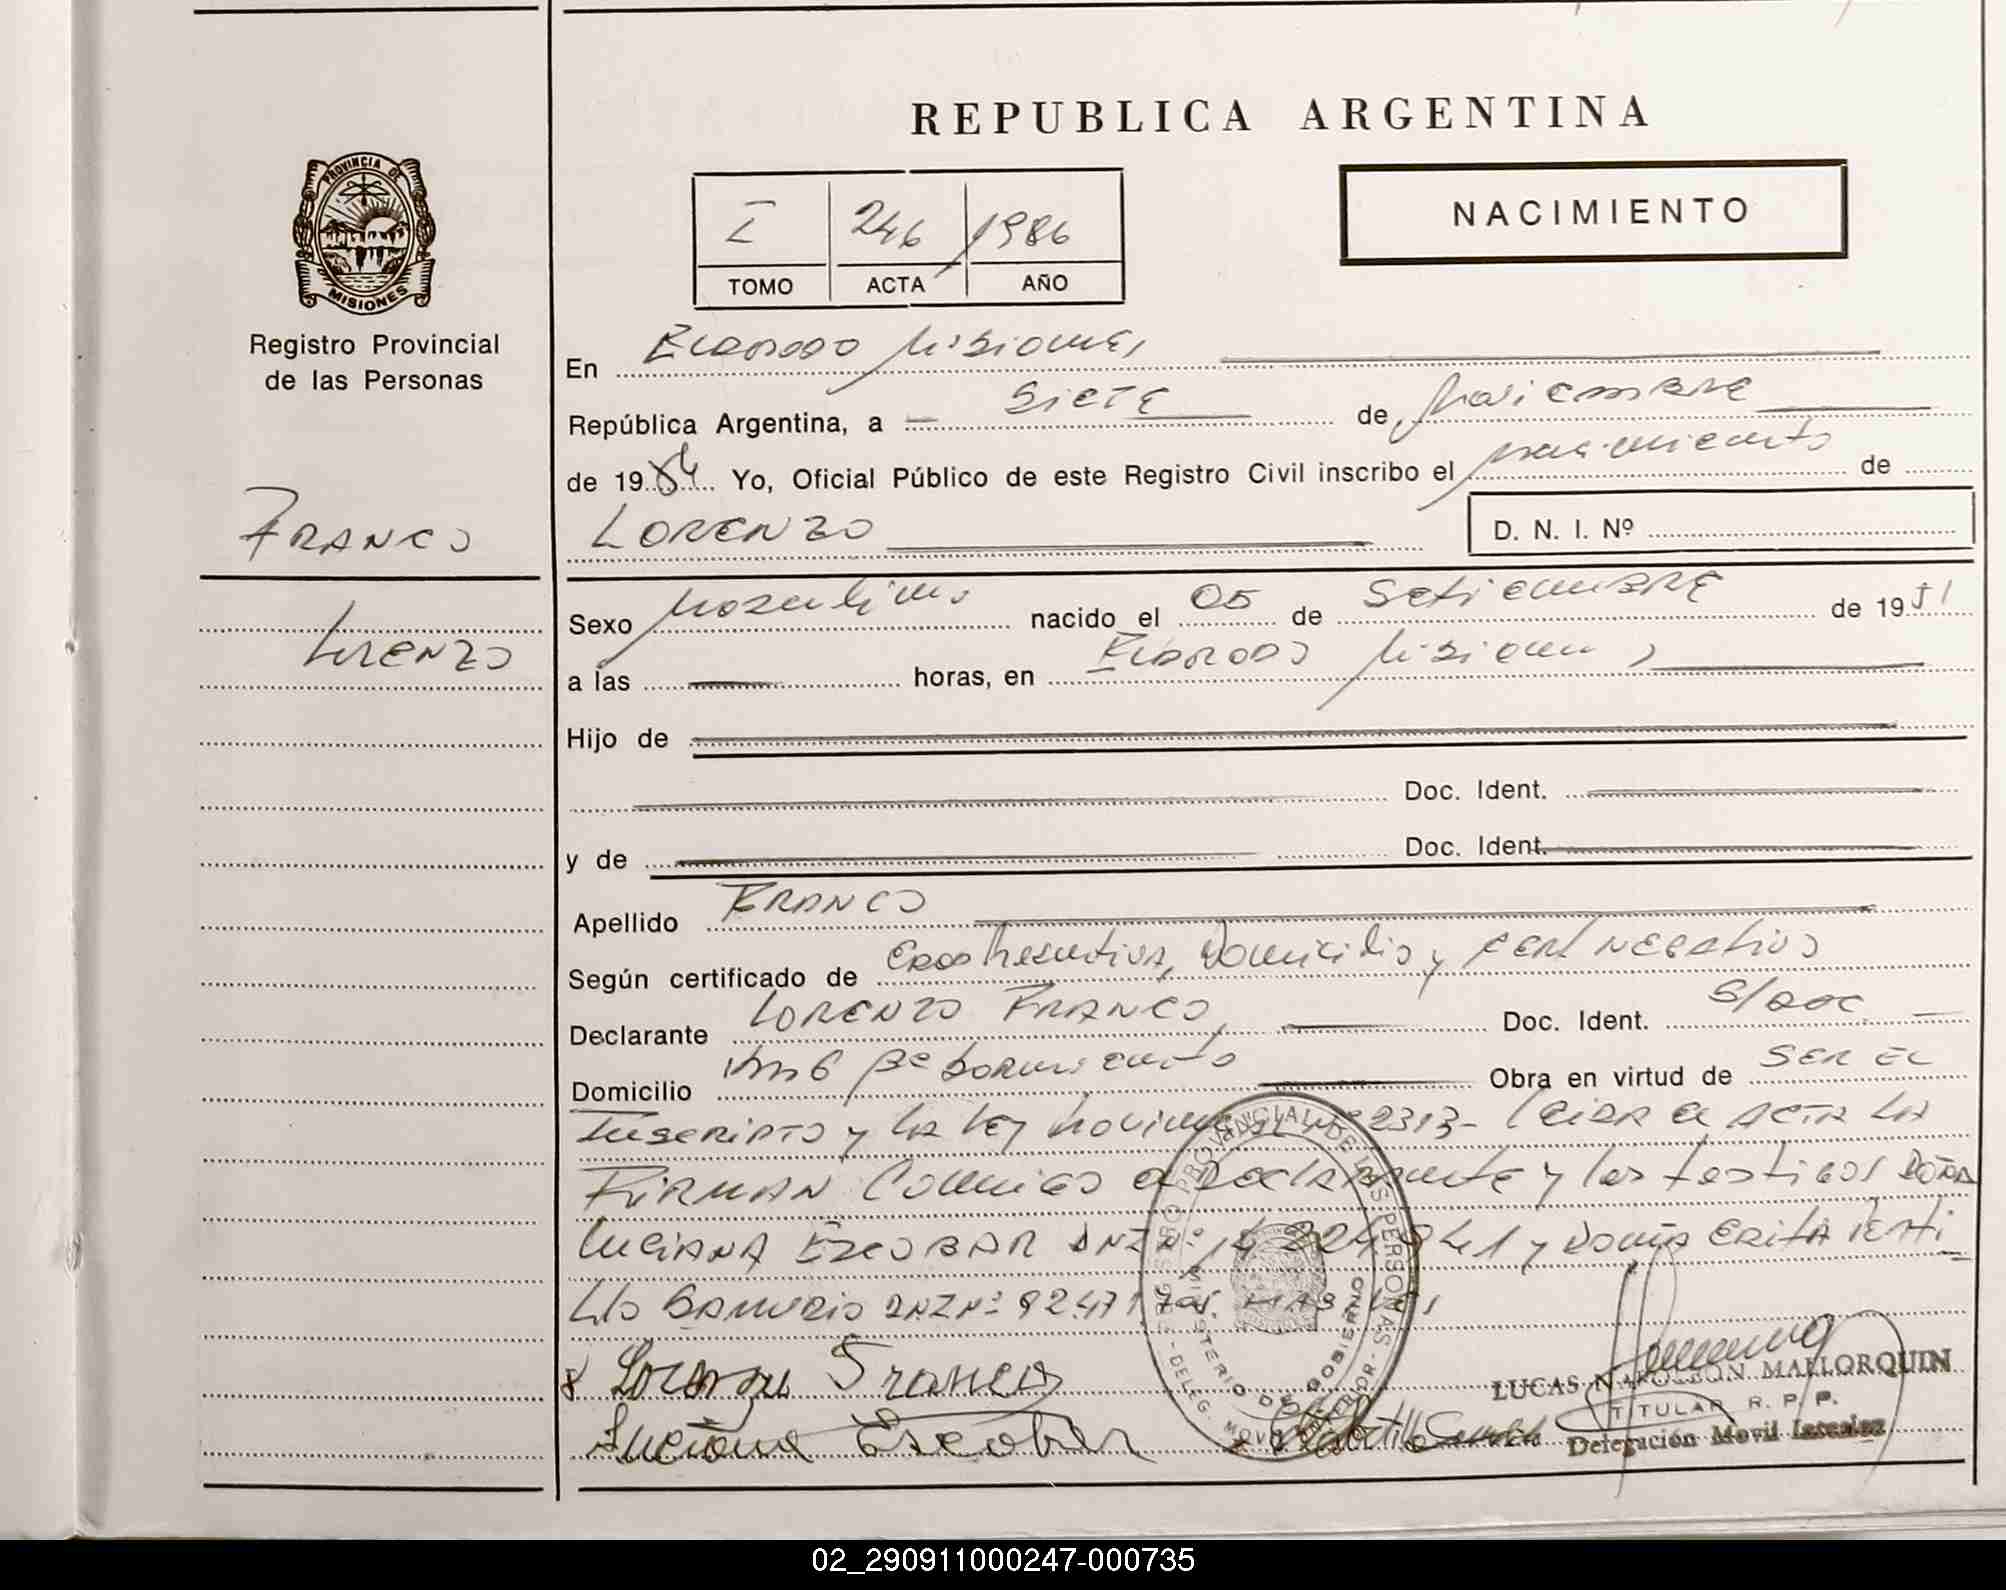 REPUBLICA ARGENTINA
PROVINCIA DE MISIONES
Registro Provincial
de las Personas
NACIMIENTO
I 246 1986
TOMO ACTA AÑO
En Eldorado Misiones,
República Argentina, a Siete de Noviembre
de 19 86 Yo, Oficial Público de este Registro Civil inscribo el nacimiento de
FRANCO
LORENZO
D. N. I. Nº
Lorenzo
Sexo Masculino nacido el 05 de Setiembre de 19 51
a las horas, en Eldorado Misiones
Hijo de
Doc. Ident.
y de Doc. Ident.
Apellido FRANCO
Según certificado de Edad Presuntiva, Domicilio y Cert Negativo
Declarante LORENZO FRANCO, Doc. Ident. S/Doc
Domicilio Km 6 Bº Obra en virtud de SER EL
Inscripto y la Ley Nº 2313- Leida el ACTA LA
FIRMAN Conmigo el Declarante y los testigos Doña
LUCIANA ESCOBAR DNI Nº y Doña
DNI Nº
Lorenzo Franco
Luciana Escobar
REGISTRO PROVINCIAL DE LAS PERSONAS
MINISTERIO DE GOBIERNO
LUCAS NAPOLEON MALLORQUIN
TITULAR R. P. P.
Delegación Movil Interior
02_290911000247-000735